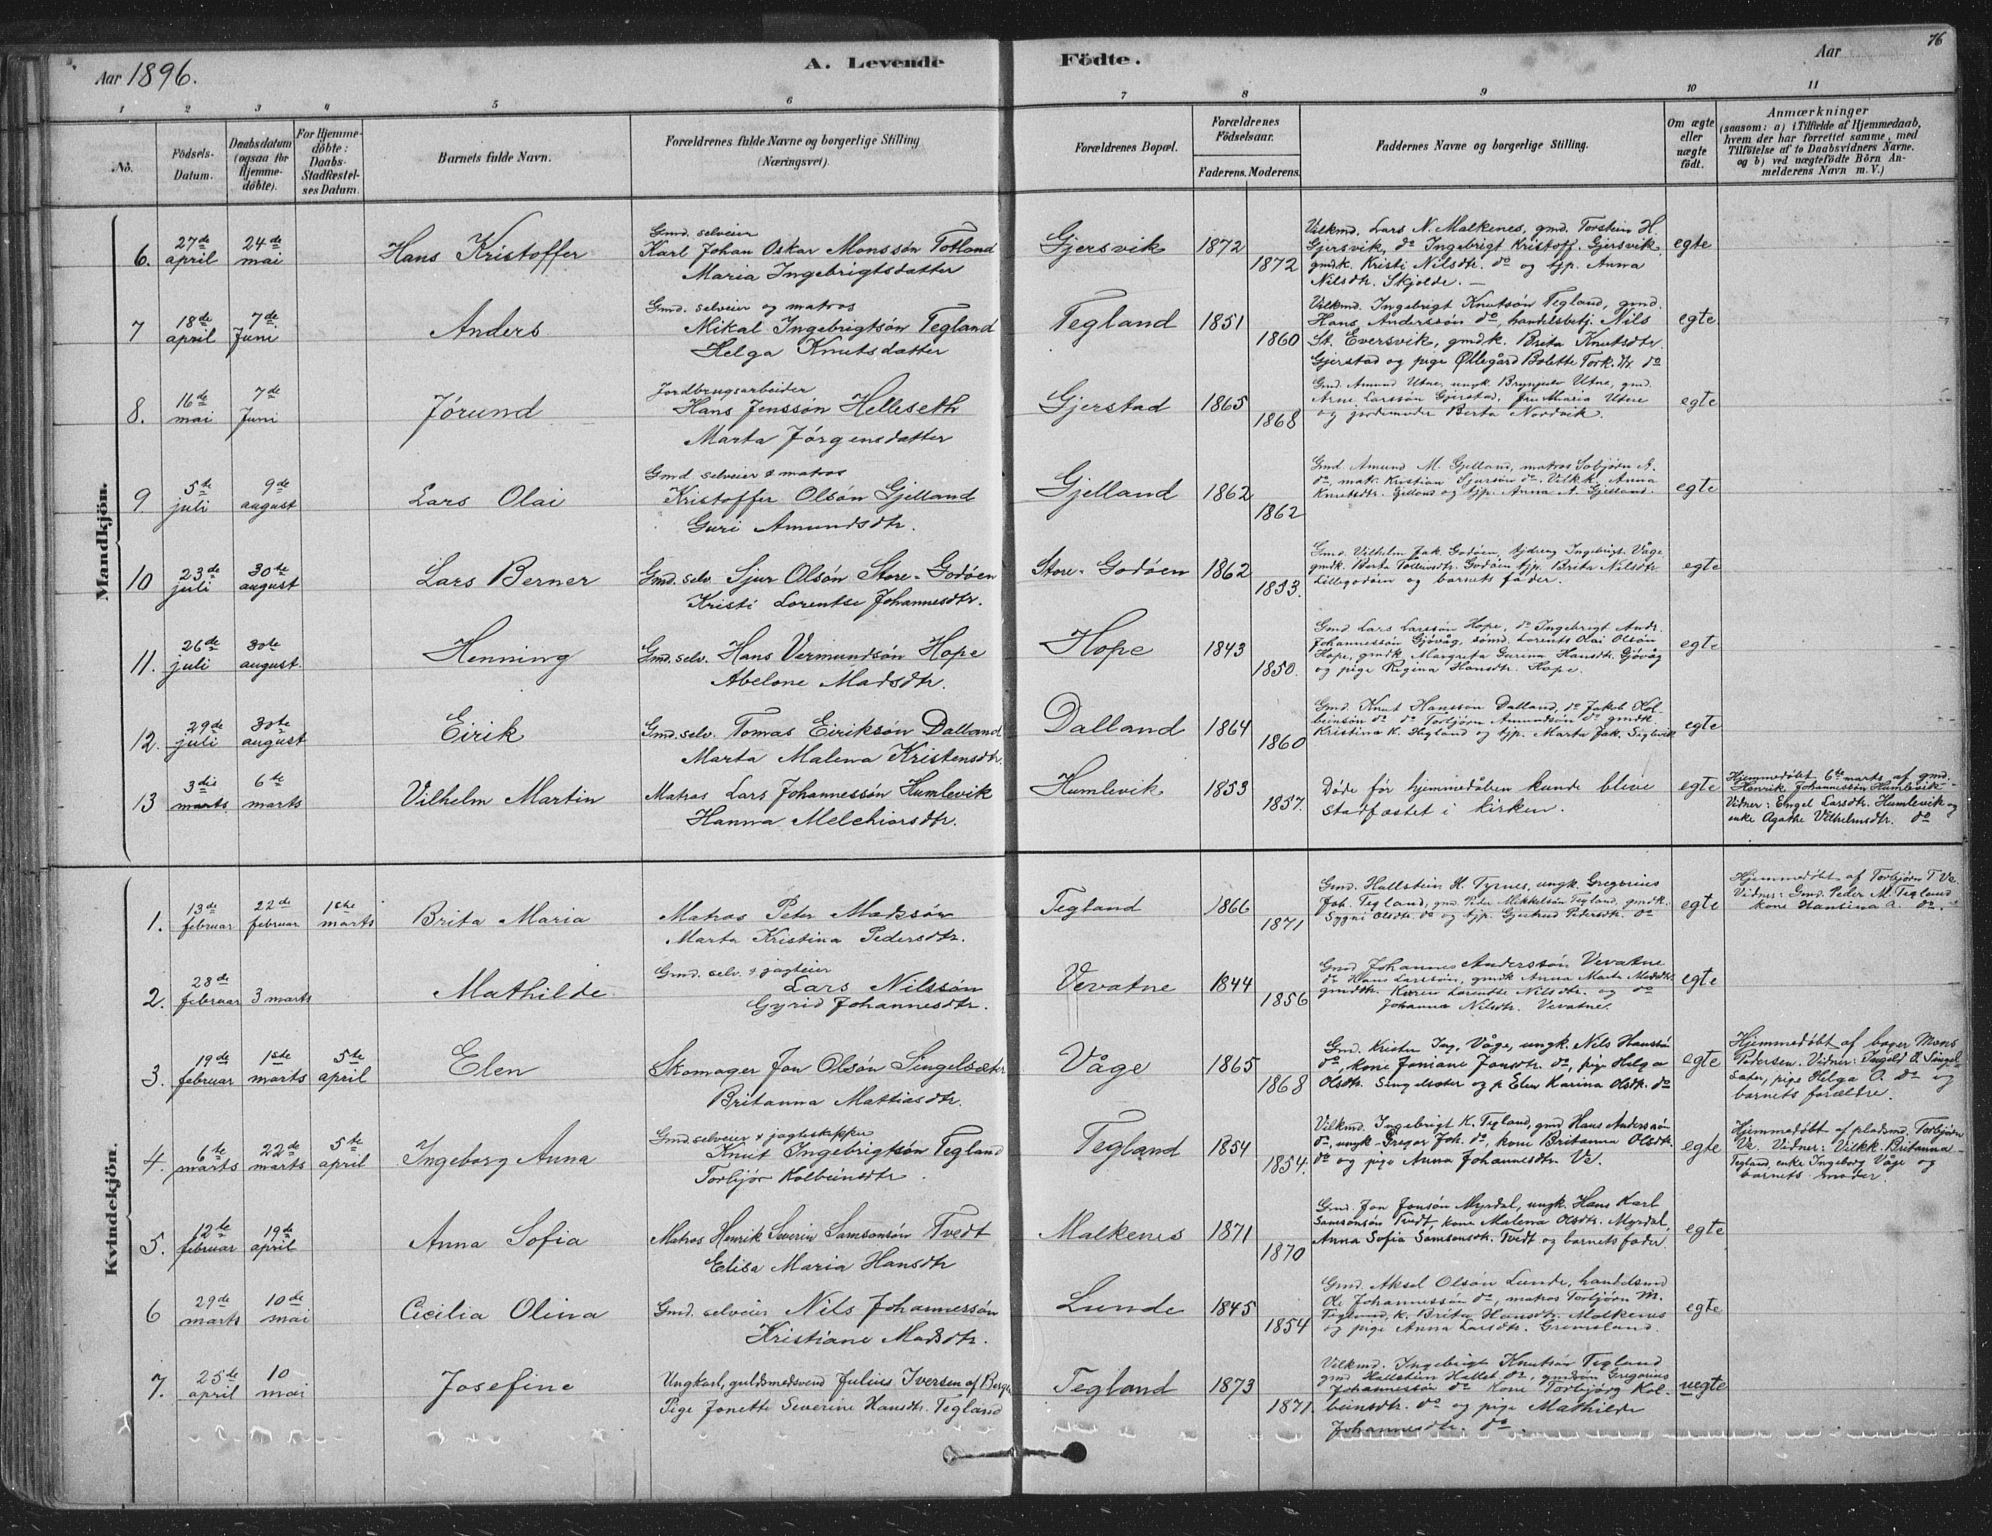 Aar 1896.
A. Levende
Födte.
Aar
76
1
2
3
4
5
6
7
8
9
10
11
No.
Födsels-
Datum.
Daabsdatum
(ogsaa for
Hjemme-
döbte).
For Hjemme-
döbte:
Daabs-
Stadfæstel-
ses Datum.
Barnets fulde Navn.
Forældrenes fulde Navne og borgerlige Stilling
(Næringsvei).
Forældrenes Bopæl.
Forældrenes
Födselsaar.
Faderens. Moderens.
Faddernes Navne og borgerlige Stilling.
Om ægte
eller
uægte
födt.
Anmærkninger
(saasom: a) i Tilfælde af Hjemmedaab,
hvem der har forrettet samme, med
Tilföielse af to Daabsvidners Navne.
og b) ved uægtefödte Börn An-
melderens Navn m. V.)
Mandkjön.
6. 27de april 24de mai Hans Kristoffer
Gmd. selveier
Karl Johan Oskar Monssön Totland
Maria Ingebrigtsdatter
Gjersvik 1872 1872
Vilkmd. Lars N. Malkenes, gmd. Torstein H.
Gjersvik, do Ingebrigt Kristoff. Gjersvik,
gmdk. Kristi Nilsdtr. do og tjp. Anna
Nilsdtr. Skjolde. —
egte
7 18de april 7de Juni Anders
Gmd. selveier og matros
Mikal Ingebrigtsön Tegland
Helga Knutsdatter
Tegland 1851 1860
Vilkmd. Ingebrigt Knutsön Tegland, gmd.
Hans Anderssön do, handelsbetj. Nils
St. Eversvik, gmdk. Brita Knutsdtr.
Gjerstad og pige Øllegård Bolette Tork. do
egte.
8. 16de mai 7de Juni Jörund
Jordbrugsarbeider
Hans Jenssön Helleseth
Marta Jörgensdatter
Gjerstad 1865 1868
Gmd. Amund Utne, ungk. Brynjulv Utne, gmd.
Arne Larssön Gjerstad, fru Maria Utne
og jordmoder Berta Nordvik.
egte
9. 5te juli 9de august Lars Olai
Gmd selveier & matros
Kristoffer Olsön Gjelland
Guri Amundsdtr.
Gjelland 1862 1862
Gmd. Amund M. Gjelland, matros Torbjörn A.
do, mat. Kristian Sjursön do. Vilkk. Anna
Knutsdtr. Gjelland og tjp. Anna A. Gjelland.
egte
10 23de juli 30te august Lars Berner
Gmd. selv. Sjur Olsön Store-Godöen
Kristi Lorentse Johannesdtr.
Store-Godöen 1862 1853.
Gmd. Vilhelm Jak. Godöen, tjdreng Ingebrigt Våge
gmdk. Berta Tollevsdtr. Godöen tjp. Brita Nilsdtr.
Lillegodöen og barnets fader.
egte
11. 26de juli 30te august. Henning
Gmd. selv. Hans Vermundsön Hope
Abelone Madsdtr.
Hope 1843 1850.
Gmd Lars Larssön Hope, do Ingebrigt Andr.
Johannessön Gjövåg, sömd. Lorents Olai Olsön
Hope, gmdk. Margreta Gurina Hansdtr. Gjövåg
og pige Regina Hansdtr. Hope.
egte
12. 29de juli 30te august Eirik
Gmd. selv. Tomas Eiriksön Dalland
Marta Malena Kristensdtr.
Dalland 1864 1860
Gmd. Knut Hansson Dalland, do Jakob Kol-
beinsön do do Torbjörn Amundsön do gmdk.
Kristina K. Hegland og tjp. Marta Jak. Siglevik
egte
13 3die marts 6te marts Vilhelm Martin
Matros Lars Johannessön Humlevik
Hanna Melchiorsdtr.
Humlevik 1853 1857.
Døde før hjemmedåben kunde blive
stadfæstet i kirken.
egte
Hjemmedöbt 6te marts af gmd.
Henrik Johannessön Humlevik
Vidner: Engel Larsdtr. Humlevik og
enke Agathe Vilhelmsdtr. do
Kvindekjön.
1. 13de februar 22de februar 1ste marts Brita Maria
Matros Peter Madssön
Marta Kristina Pedersdtr.
Tegland 1866 1871
Gmd. Hallstein H. Tyrnes, ungk. Gregorius
Joh. Tegland, gmd. Peter Mikkelsön Tegland, gmdk.
Sygni Olsdtr. do og tjp. Gjertrud Petersdtr. do
egte
Hjemmedöbt af Torbjörn T. Ve.
Vidner: Gmd. Peder M. Tegland
kone Hansina A. do.
2. 28de februar 3 marts Mathilde
Gmd. selv. & jagteier
Lars Nilssön
Gyrid Johannesdtr.
Vevatne 1844 1856
Gmd Johannes Anderssön Vevatne
do Hans Larssön, gmdk Anna Marta Madsdtr.
gmdtr. Karen Lorentse Nilsdtr. og do
Johanna Nilsdtr. Vevatne.
egte
3. 19de februar 1ste marts 5te april Elen
Skomager Jon Olsön Singelsæter
Britanna Mattiasdtr.
Våge 1865 1868
Gmd. Krister Ing. Våge, ungk. Nils Hanssö
do, kone Joniane Jonsdtr. do, pige Helga
Olsdtr. Singelsæter og p. Elen Karina Olsdtr. do
egte
Hjemmedöbt af bager Mons
Pedersen. Vidner: Ingeld O. Singel-
sæter, pige Helga O. do og
barnets forældre.
4. 6te marts 22de marts 5te april Ingeborg Anna
Gmd. selveier & jagteskipper
Knut Ingebrigtsön Tegland
Torbjör Kolbeinsdtr.
Tegland 1854 1854.
Vilkmd. Ingebrigt K. Tegland, gmd Hans Anderssön
do, ungk. Gregor Joh. do, kone Britanna Olsdtr.
do og pige Anna Johannesdtr. Ve.
egte
Hjemmedöbt af pladsmd. Torbjörn
Ve. Vidner: Vilkk. Britanna
Tegland, enke Ingeborg Våge og
barnets moder.
5. 12te februar 19de april Anna Sofia
Matros Henrik Severin Samsonsön Tvedt
Elisa Maria Hansdtr
Malkenes 1871 1870
Gmd. Jon Jonsön Myrdal, ungk. Hans Karl
Samsonsön Tvedt, kone Malena Olsdtr. Myrdal,
Anna Sofia Samsonsdtr. Tvedt og barnets fader.
egte
6 29de marts 10de mai Cecilia Olina
Gmd. selveier Nils Johannessön
Kristiane Madsdtr.
Lunde 1845 1854
Gmd. Aksel Olsön Lunde, handelsmd
Ole Johannessön do, matros Torbjörn M.
Tegland, k. Brita Hansdtr. Malkenes
og pige Anna Larsdtr. Grimsland
egte
7. 25de april 10 mai Josefine
Ungkarl, guldsmedsvend Julius Iversen af Bergen
Pige Jonette Severine Hansdtr. Tegland
Tegland 1873 1871.
Vilkmd. Ingebrigt Knutsön Tegland
gmd Hallstein Hallst. do, gmdsön Gregorius
Johannessön do kone Torbjörg Kol-
beinsdtr. do og pige Mathilde
Johannesdtr. do.
uegte